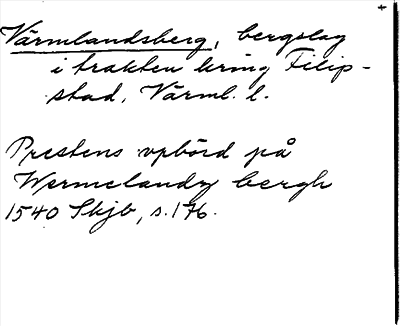 Värmlandsberg, bergslag
i trakten kring Filip-
stad, Värml. l.
Prestens vpbörd på
Wermelandz bergh
1540 Skjb, s. 176.